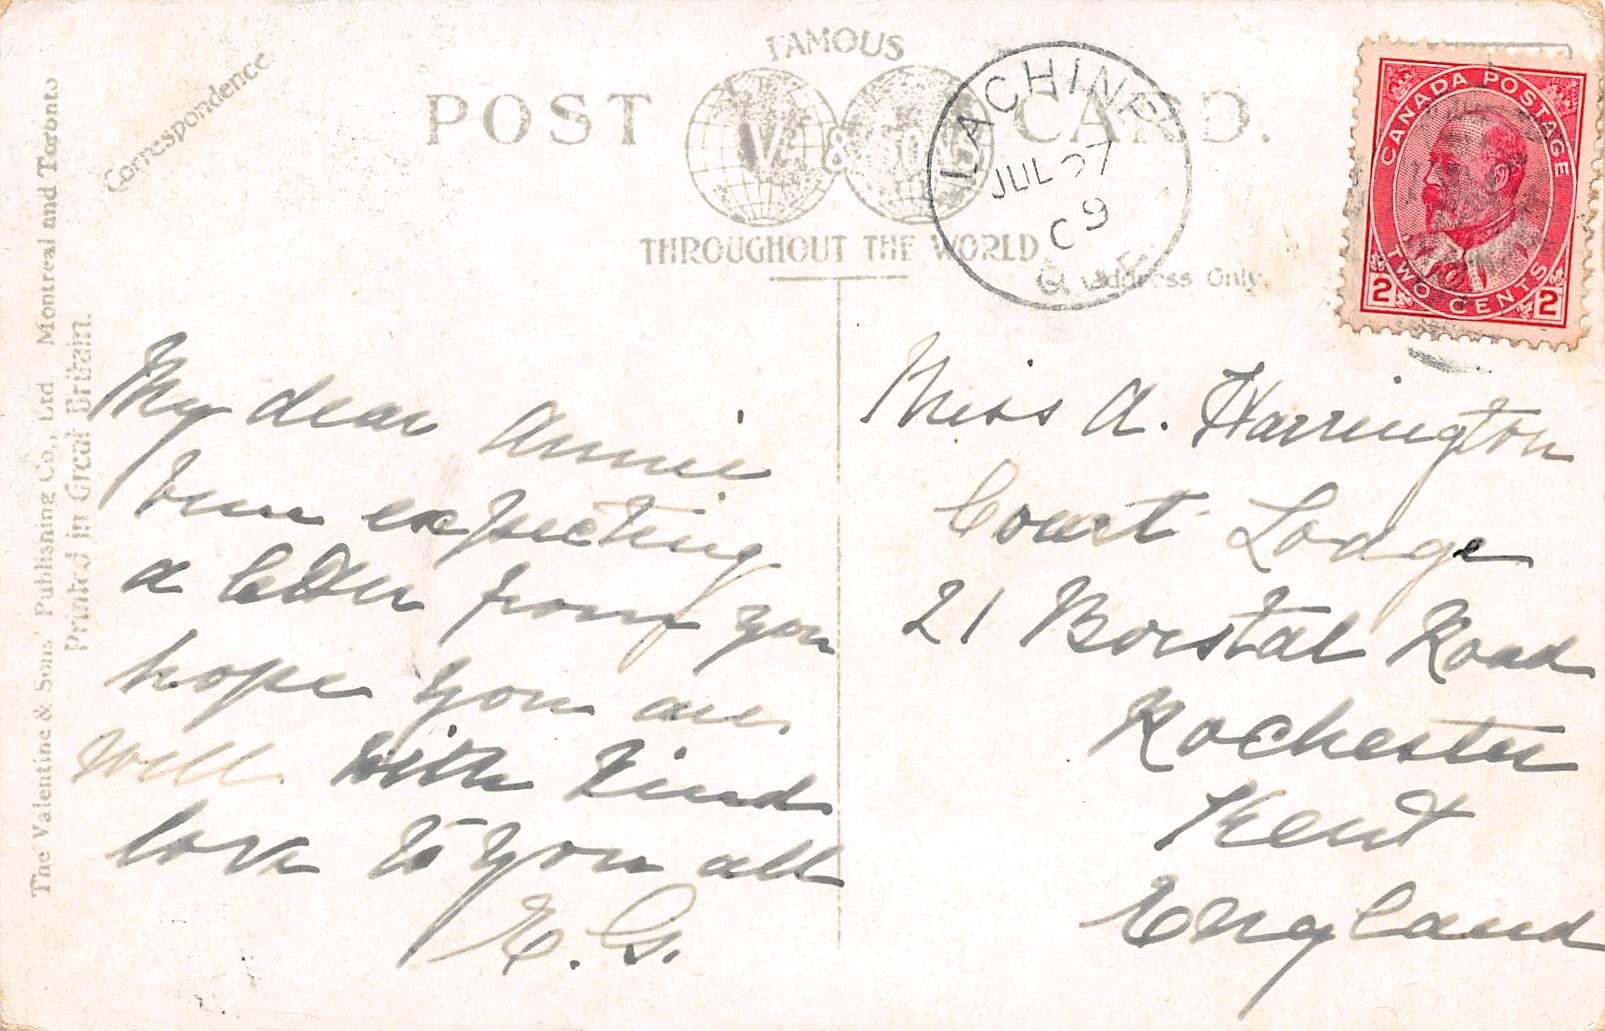 Correspondence
FAMOUS
POST CARD.
V. & SONS
THROUGHOUT THE WORLD
Address Only.
LACHINE
JUL 27
09
QUE
CANADA POSTAGE
TWO CENTS
2 2
The Valentine & Sons' Publishing Co., Ltd Montreal and Toronto
Printed in Great Britain.
My dear Annie
been expecting
a letter from you
hope you are
well with kind
love to you all
E. G.
Miss A. Harrington
Court Lodge
21 Borstal Road
Rochester
Kent
England